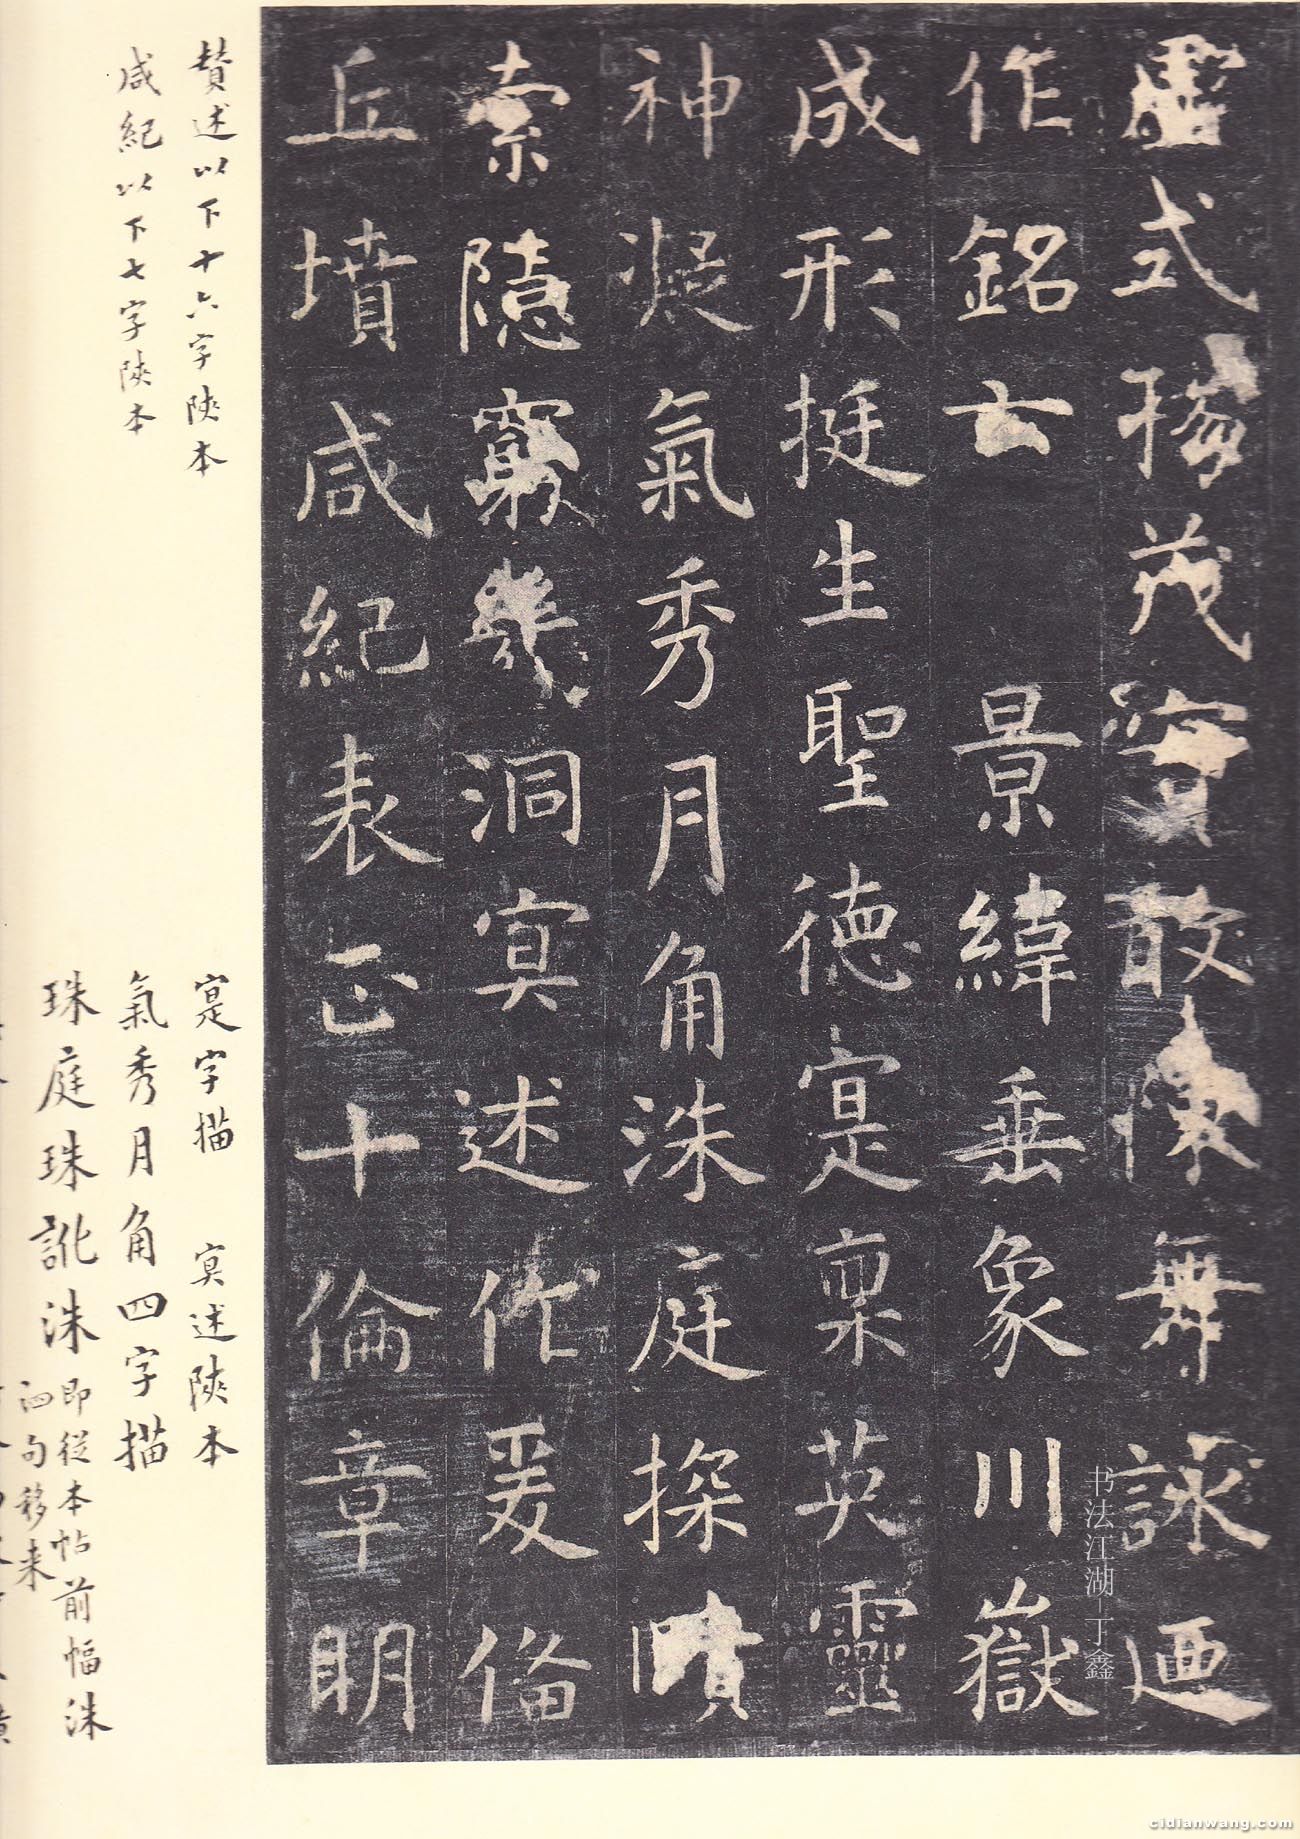 虛式揚茂實敢陳舞詠迺
作銘云 景緯垂象川嶽
成形挺生聖德寔稟英靈
神凝氣秀月角洙庭探賾
索隱窮幾洞冥述作爰俻
丘墳咸紀表正十倫章明
賛述以下十六字陝本
咸紀以下七字陝本
寔字描 冥述陝本
氣秀月角四字描
珠庭珠訛洙即從本帖前幅洙
泗句移来
书法江湖-丁鑫
cidianwang.com